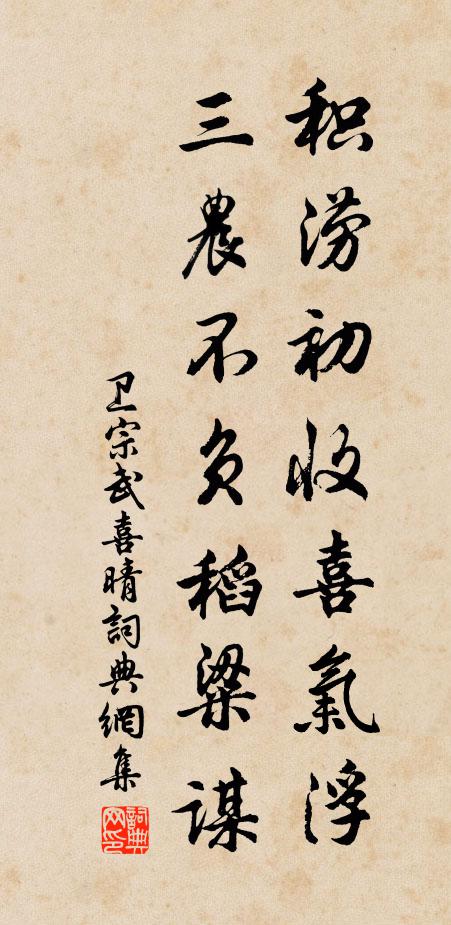 积涝初收喜氣浮
三農不负稻粱谋
卫宗武喜晴詞典網集
詞典网印